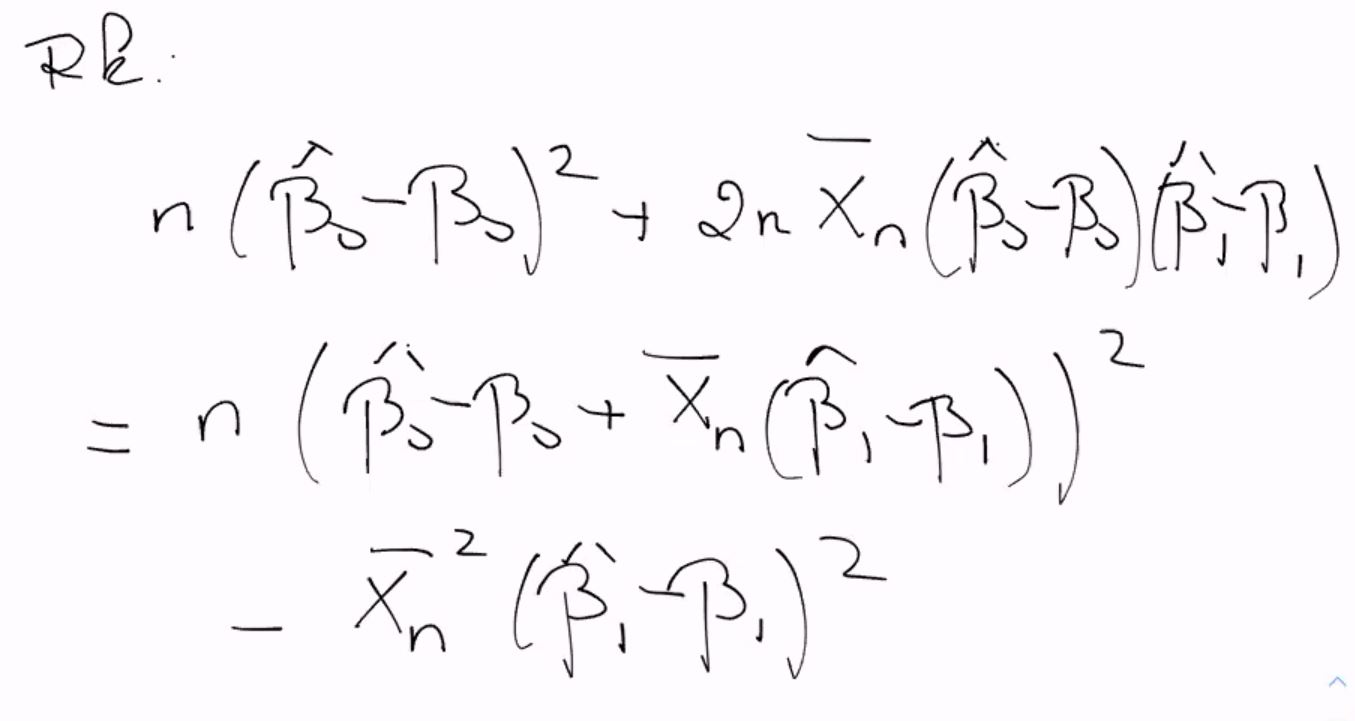 Rk:
n(β̂₀-β₀)² + 2n X̄ₙ(β̂₀-β₀)(β̂₁-β₁)
= n(β̂₀-β₀ + X̄ₙ(β̂₁-β₁))²
- X̄ₙ²(β̂₁-β₁)²